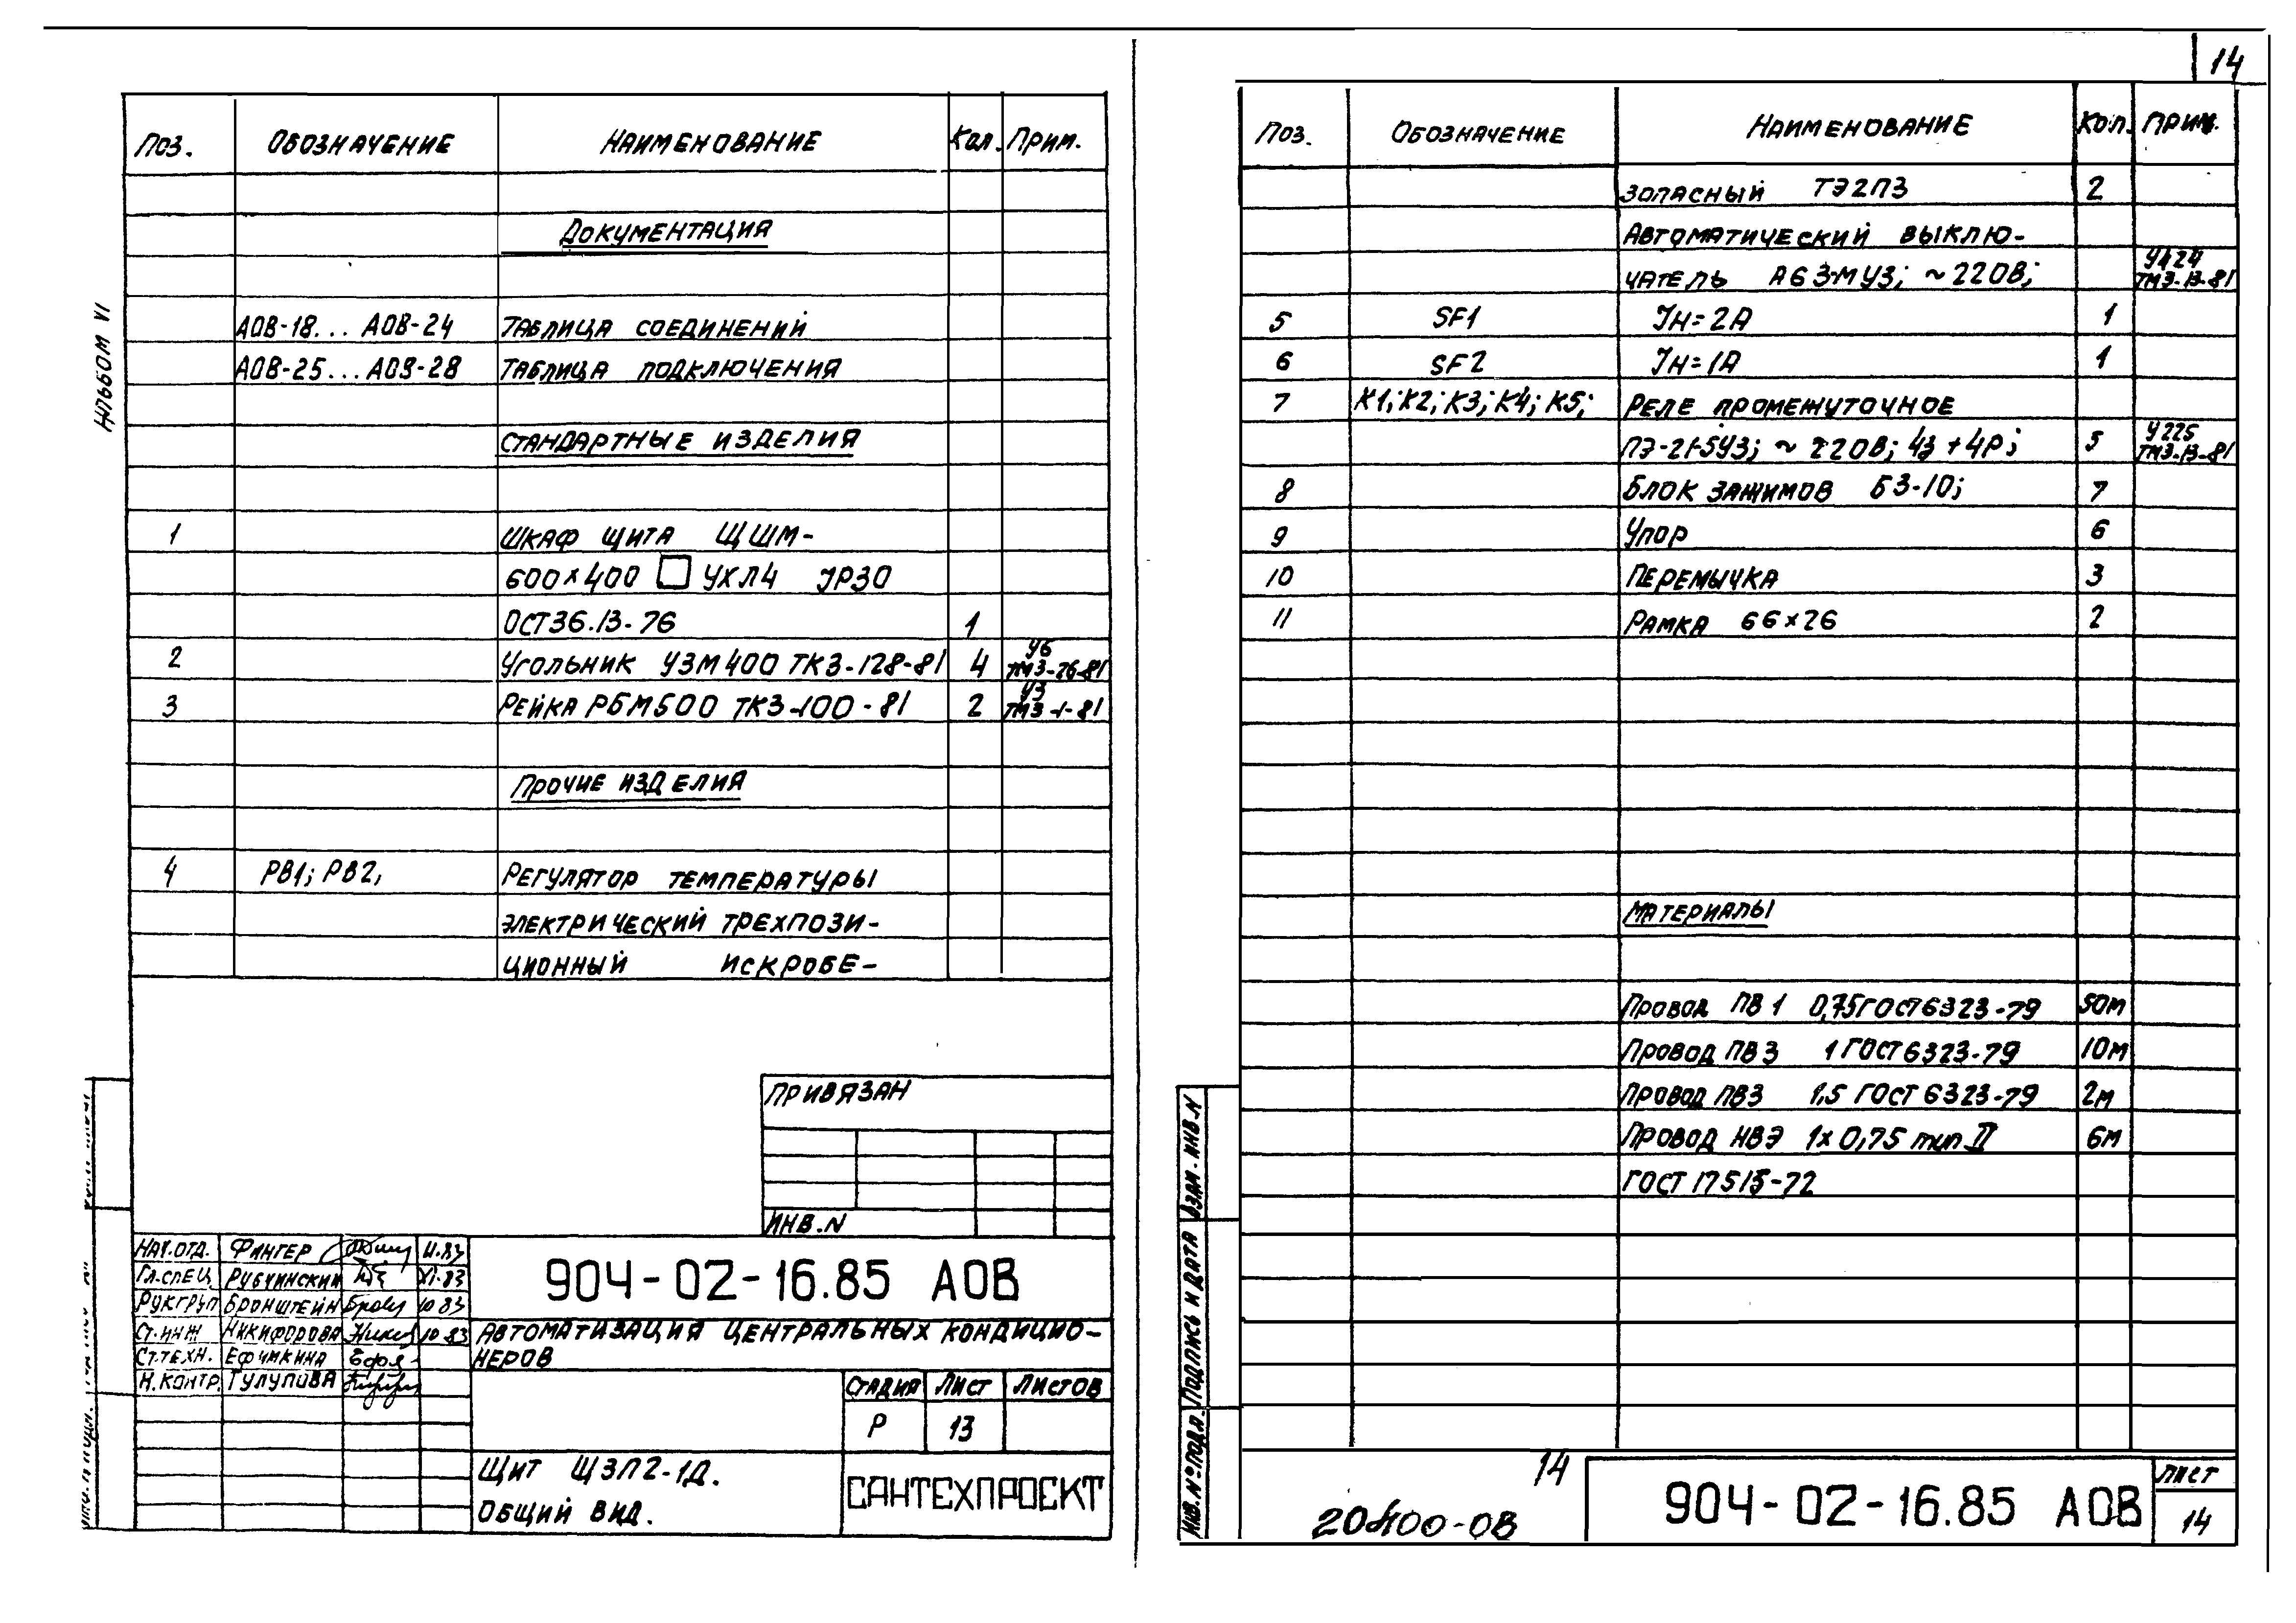 14
Альбом VI
Поз. Обозначение Наименование Кол. Прим.
Документация
АОВ-18... АОВ-24 Таблица соединений
АОВ-25... АОВ-28 Таблица подключения
Стандартные изделия
1 Шкаф щита ЩШМ-
600×400 □ УХЛ4 IP30
ОСТ36.13-76 1
2 Угольник УЗМ400 ТК3-128-81 4 У6 ТМ3-26-81
3 Рейка РБМ500 ТК3-100-81 2 У3 ТМ3-1-81
Прочие изделия
4 РВ1; РВ2; Регулятор температуры
электрический трехпози-
ционный искробе-
Привязан
Инв.N
Нач.отд. Фингер 11.83
Гл.спец. Рубчинский XI.83
Рук.груп Бронштейн 10 83
Ст.инж Никифорова 10 83
Ст.техн. Ефимкина
Н.контр. Тулупова
904-02-16.85 АОВ
Автоматизация центральных кондицио-
неров
Стадия Лист Листов
Р 13
Щит ЩЗП2-1Д.
Общий вид.
САНТЕХПРОЕКТ
Поз. Обозначение Наименование Кол. Прим.
запасный ТЭ2П3 2
Автоматический выклю-
чатель А63-МУ3; ~220В; У424 ТМ3-13-81
5 SF1 Iн=2А 1
6 SF2 Iн=1А 1
7 К1; К2; К3; К4; К5; Реле промежуточное
ПЭ-21-5У3; ~220В; 4з+4р; 5 У225 ТМ3-13-81
8 Блок зажимов БЗ-10; 7
9 Упор 6
10 Перемычка 3
11 Рамка 66×26 2
Материалы
Провод ПВ1 0,75 ГОСТ 6323-79 50м
Провод ПВ3 1 ГОСТ 6323-79 10м
Провод ПВ3 1,5 ГОСТ 6323-79 2м
Провод НВЭ 1×0,75 тип II 6м
ГОСТ 17515-72
Взам.инв.N
Подпись и дата
Инв.№подл.
14
20400-08
904-02-16.85 АОВ
Лист
14